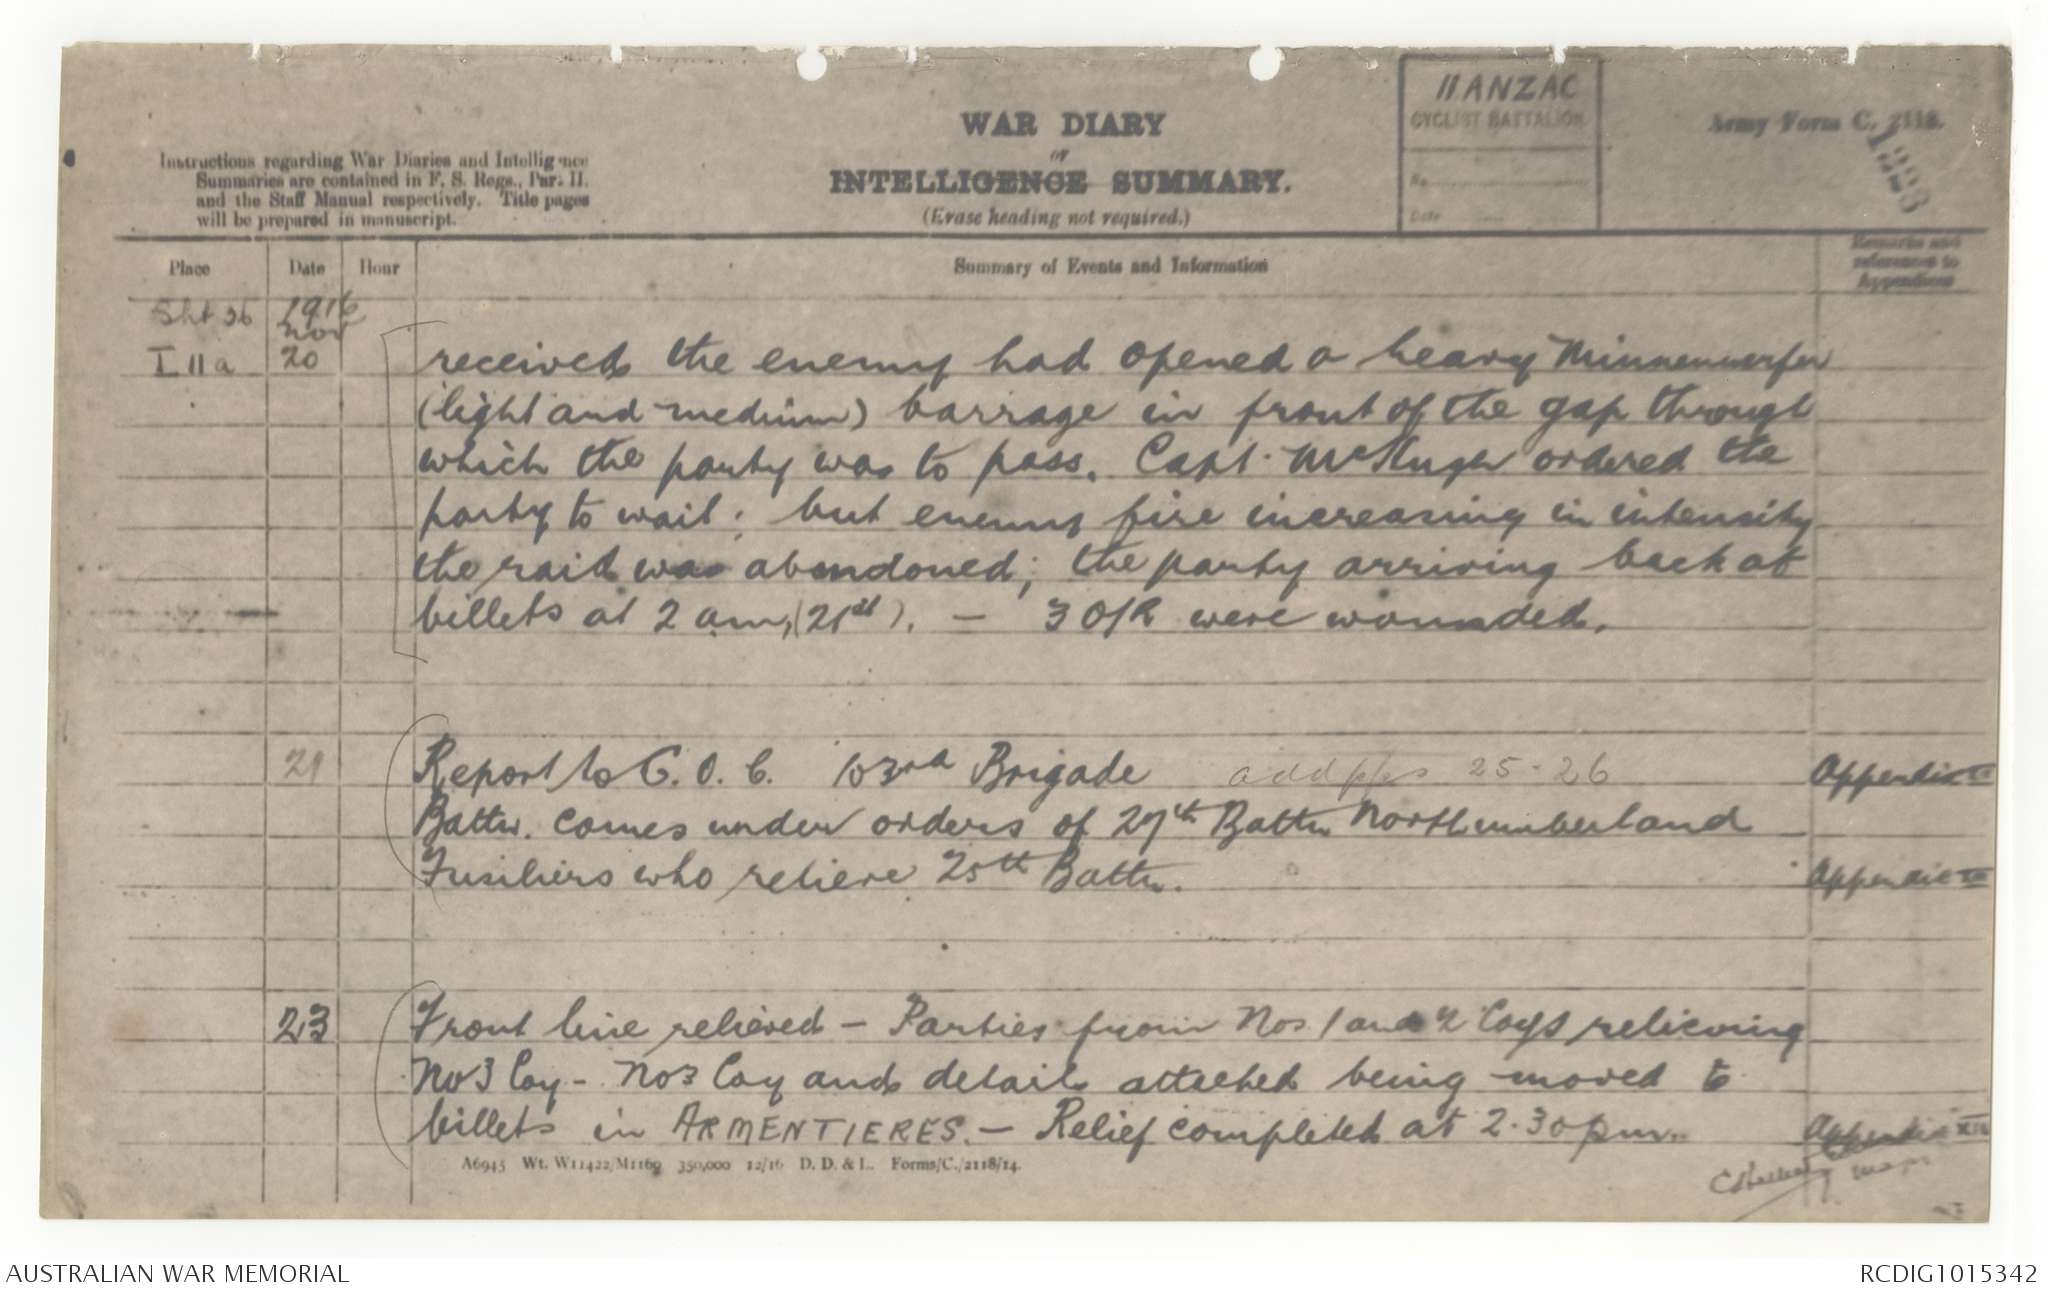 II ANZAC
CYCLIST BATTALION
No.
Date
Army Form C. 2118.
1223
WAR DIARY
or
INTELLIGENCE SUMMARY.
(Erase heading not required.)
Instructions regarding War Diaries and Intelligence
Summaries are contained in F. S. Regs., Part II.
and the Staff Manual respectively. Title pages
will be prepared in manuscript.
Place Date Hour Summary of Events and Information Remarks and references to Appendices
Sht 36 1916
Nov
I 11 a 20 received the enemy had opened a heavy Minnenwerfer
(light and medium) barrage in front of the gap through
which the party was to pass. Capt. McHugh ordered the
party to wait; but enemy fire increasing in intensity
the raid was abandoned; the party arriving back at
billets at 2 am, (21st). — 3 O/R were wounded.
21 Report to G.O.C. 103rd Brigade 25-26 Appendix
Battn. comes under orders of 27th Battn Northumberland
Fusiliers who relieve 25th Battn. Appendix
23 Front line relieved — Parties from Nos 1 and 2 Coys relieving
No 3 Coy - No 3 Coy and details attached being moved to
billets in ARMENTIERES. — Relief completed at 2.30 pm. Appendix
Major
A6945 Wt. W11422/M1160 350,000 12/16 D. D. & L. Forms/C./2118/14.
AUSTRALIAN WAR MEMORIAL RCDIG1015342